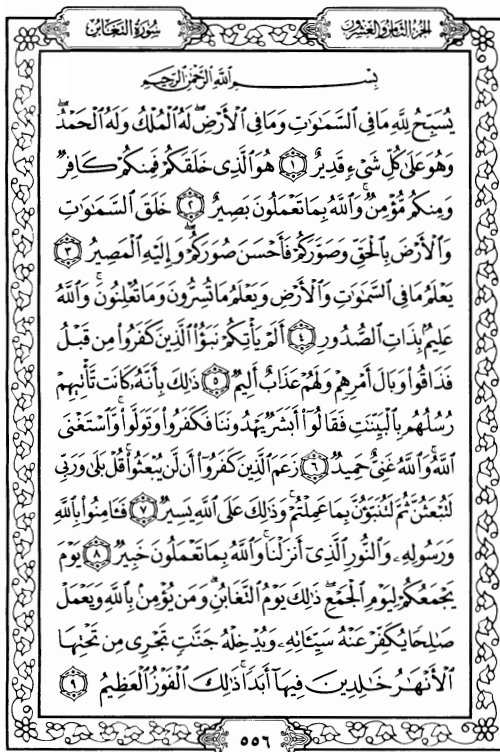 سُورَةُ التَّغَابُنِ
الجُزْءُ الثَّامِنُ وَالعِشْرُونَ
بِسْمِ اللَّهِ الرَّحْمَٰنِ الرَّحِيمِ
يُسَبِّحُ لِلَّهِ مَا فِي السَّمَٰوَٰتِ وَمَا فِي الْأَرْضِ ۖ لَهُ الْمُلْكُ وَلَهُ الْحَمْدُ ۖ
وَهُوَ عَلَىٰ كُلِّ شَيْءٍ قَدِيرٌ ١ هُوَ الَّذِي خَلَقَكُمْ فَمِنكُمْ كَافِرٌ
وَمِنكُم مُّؤْمِنٌ ۚ وَاللَّهُ بِمَا تَعْمَلُونَ بَصِيرٌ ٢ خَلَقَ السَّمَٰوَٰتِ
وَالْأَرْضَ بِالْحَقِّ وَصَوَّرَكُمْ فَأَحْسَنَ صُوَرَكُمْ ۖ وَإِلَيْهِ الْمَصِيرُ ٣
يَعْلَمُ مَا فِي السَّمَٰوَٰتِ وَالْأَرْضِ وَيَعْلَمُ مَا تُسِرُّونَ وَمَا تُعْلِنُونَ ۚ وَاللَّهُ
عَلِيمٌ بِذَاتِ الصُّدُورِ ٤ أَلَمْ يَأْتِكُمْ نَبَؤُا۟ الَّذِينَ كَفَرُوا۟ مِن قَبْلُ
فَذَاقُوا۟ وَبَالَ أَمْرِهِمْ وَلَهُمْ عَذَابٌ أَلِيمٌ ٥ ذَٰلِكَ بِأَنَّهُۥ كَانَت تَّأْتِيهِمْ
رُسُلُهُم بِالْبَيِّنَٰتِ فَقَالُوٓا۟ أَبَشَرٌ يَهْدُونَنَا فَكَفَرُوا۟ وَتَوَلَّوا۟ ۚ وَّاسْتَغْنَى
اللَّهُ ۚ وَاللَّهُ غَنِيٌّ حَمِيدٌ ٦ زَعَمَ الَّذِينَ كَفَرُوٓا۟ أَن لَّن يُبْعَثُوا۟ ۚ قُلْ بَلَىٰ وَرَبِّي
لَتُبْعَثُنَّ ثُمَّ لَتُنَبَّؤُنَّ بِمَا عَمِلْتُمْ ۚ وَذَٰلِكَ عَلَى اللَّهِ يَسِيرٌ ٧ فَـَٔامِنُوا۟ بِاللَّهِ
وَرَسُولِهِۦ وَالنُّورِ الَّذِيٓ أَنزَلْنَا ۚ وَاللَّهُ بِمَا تَعْمَلُونَ خَبِيرٌ ٨ يَوْمَ
يَجْمَعُكُمْ لِيَوْمِ الْجَمْعِ ۖ ذَٰلِكَ يَوْمُ التَّغَابُنِ ۗ وَمَن يُؤْمِنۢ بِاللَّهِ وَيَعْمَلْ
صَٰلِحًا يُكَفِّرْ عَنْهُ سَيِّـَٔاتِهِۦ وَيُدْخِلْهُ جَنَّٰتٍ تَجْرِي مِن تَحْتِهَا
الْأَنْهَٰرُ خَٰلِدِينَ فِيهَآ أَبَدًا ۚ ذَٰلِكَ الْفَوْزُ الْعَظِيمُ ٩
٥٥٦